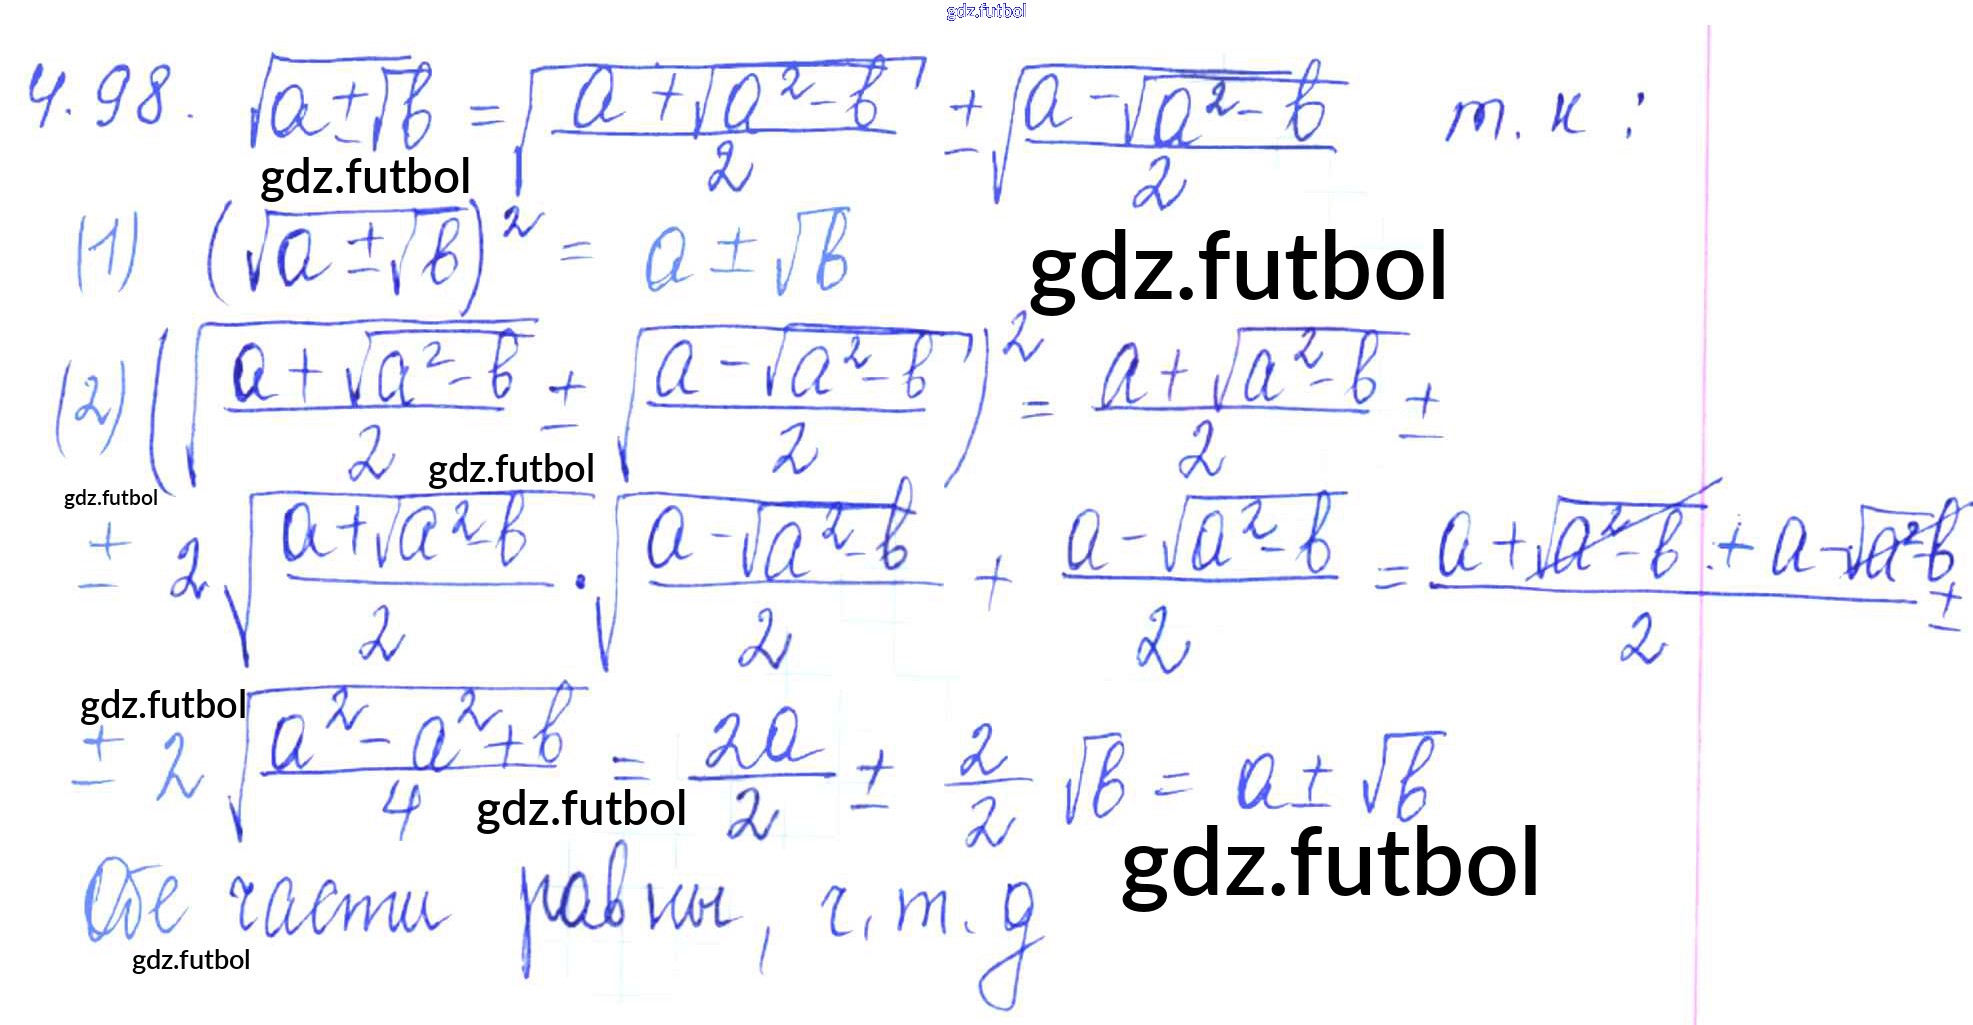 gdz.futbol
4.98. √(a±√b) = √((a+√(a²-b))/2) ± √((a-√(a²-b))/2) т.к:
gdz.futbol
(1) (√(a±√b))² = a±√b
gdz.futbol
(2) (√((a+√(a²-b))/2) ± √((a-√(a²-b))/2))² = (a+√(a²-b))/2 ±
gdz.futbol
gdz.futbol
± 2√((a+√(a²-b))/2) · √((a-√(a²-b))/2) + (a-√(a²-b))/2 = (a+√(a²-b)+a-√(a²-b))/2 ±
gdz.futbol
± 2√((a²-a²+b)/4) = 2a/2 ± 2/2 √b = a±√b
gdz.futbol
gdz.futbol
Обе части равны, ч.т.д
gdz.futbol